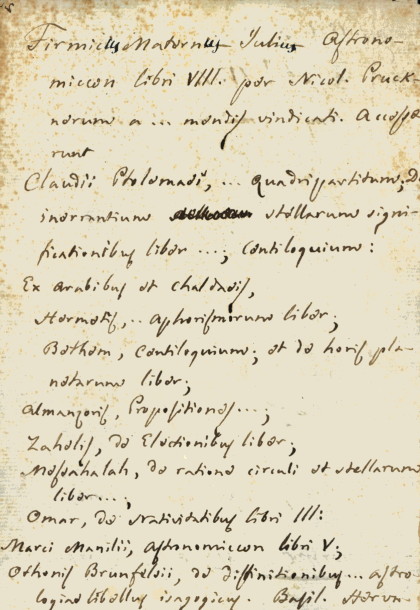 Firmicus Maternus Julius Astrono-
micωn libri VIII. per Nicol. Pruck-
nerum a ... mendis vindicati. Accesse
runt
Claudii Ptolemaei, ... Quadripartitum; D
inerrantium stellarum signi-
ficationibus liber ...; Centiloquium:
Ex Arabibus et Chaldaeis,
Hermetis, .. Aphorismorum liber;
Bethem, Centiloquium; et de horis pla-
netarum liber;
Almanzoris, Propositiones ...;
Zahelis, de Electionibus liber;
Messahalah, de ratione circuli et stellarum
liber ...;
Omar, de Nativitatibus libri III:
Marci Manilii, Astronomicωn libri V;
Othonis Brunfelsii, de diffinitionibus ... astro-
logiae libellus isagogicus. Basil. Hervu-